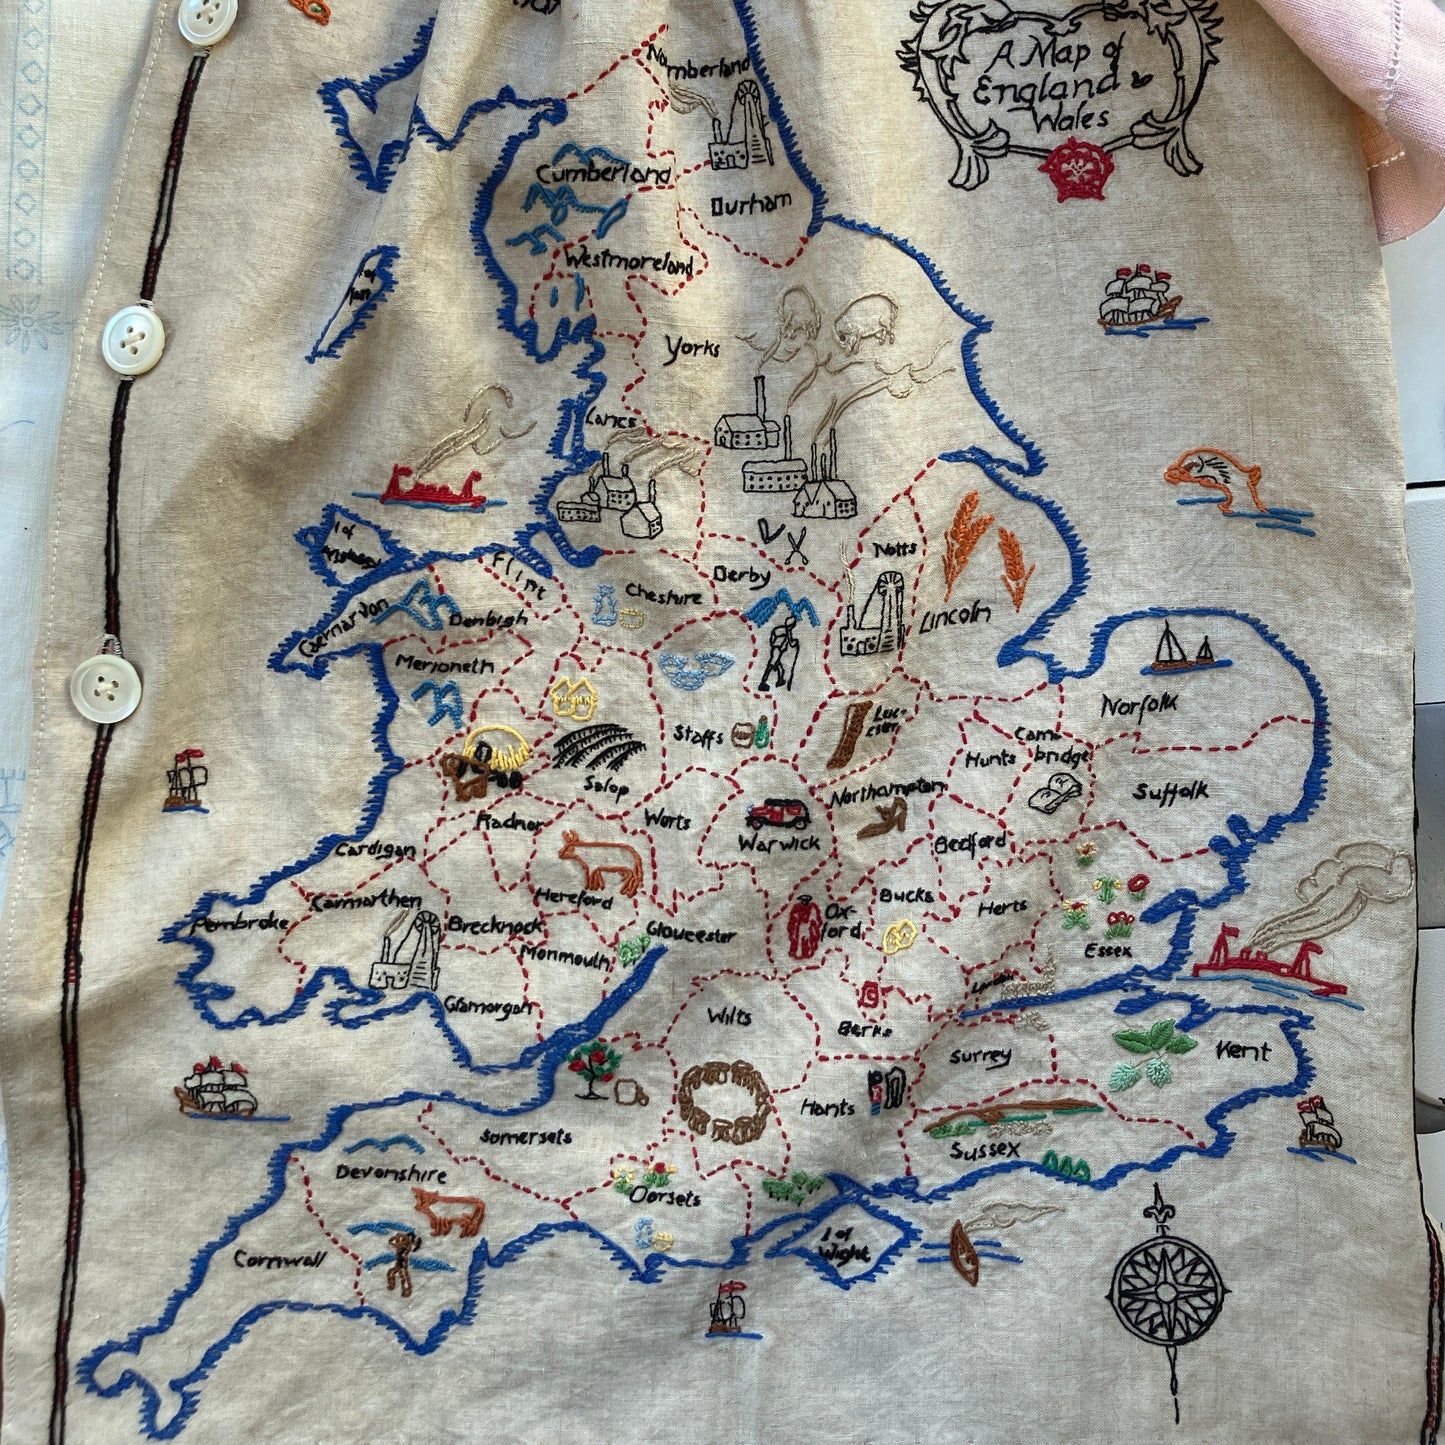 A Map of
England &
Wales
Cumberland
Durham
Westmoreland
I of
Man
Yorks
Lancs
I of
Flint
Cheshire
Derby
Notts
Lincoln
Caernarvon
Denbigh
Merioneth
Norfolk
Staffs
Hunts
Cam-
bridge
Salop
Suffolk
Northampton
Radnor
Worts
Warwick
Bedford
Cardigan
Hereford
Bucks
Herts
Carmarthen
Pembroke
Brecknock
Gloucester
Ox-
ford
Monmouth
Essex
Glamorgan
Wilts
Berks
Surrey
Kent
Hants
Somersets
Sussex
Devonshire
Dorsets
Cornwall
I of
Wight